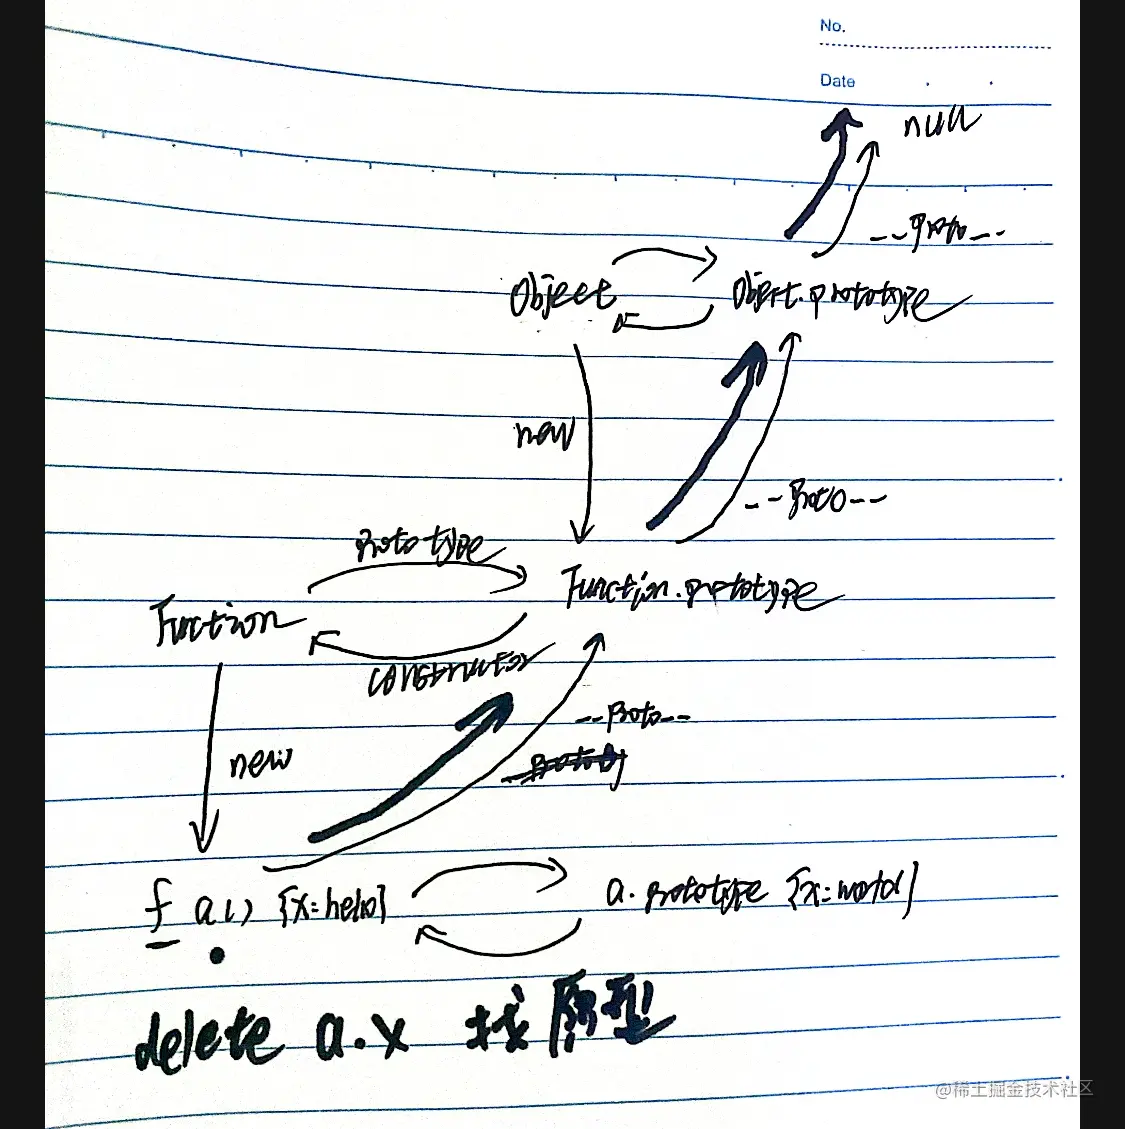 No.
Date
null
__proto__
Object
Object.prototype
new
__proto__
prototype
Function
Function.prototype
constructor
__proto__
new
f a() {x=hello}
a.prototype {x=world}
delete a.x 找原型
@稀土掘金技术社区